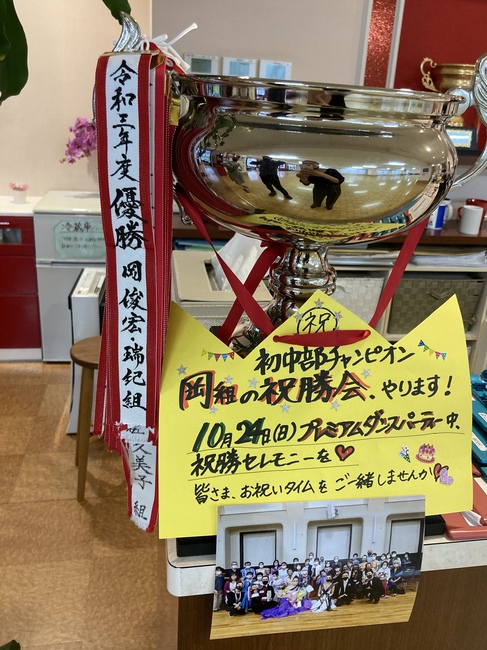 令和三年度 優勝 岡俊宏・瑞紀組
久美子組
冷蔵庫
祝
初中部チャンピオン
岡組の祝勝会、やります!
10月24日(日)プレミアムダンスパーティー中、
祝勝セレモニーを
皆さま、お祝いタイムをご一緒しませんか